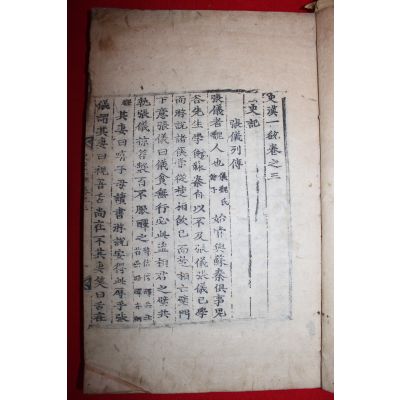 史漢一統卷之三
史記
張儀列傳
張儀者魏人也儀魏氏餘子始嘗與蘇秦俱事鬼
谷先生學術蘇秦自以不及張儀張儀已學
而游說諸侯嘗從楚相飲已而楚相亡璧門
下意張儀曰儀貧無行必此盜相君之璧共
執張儀掠笞數百不服醳之
其妻曰嘻子毋讀書游說安得此辱乎張
儀謂其妻曰視吾舌尚在不其妻笑曰舌在